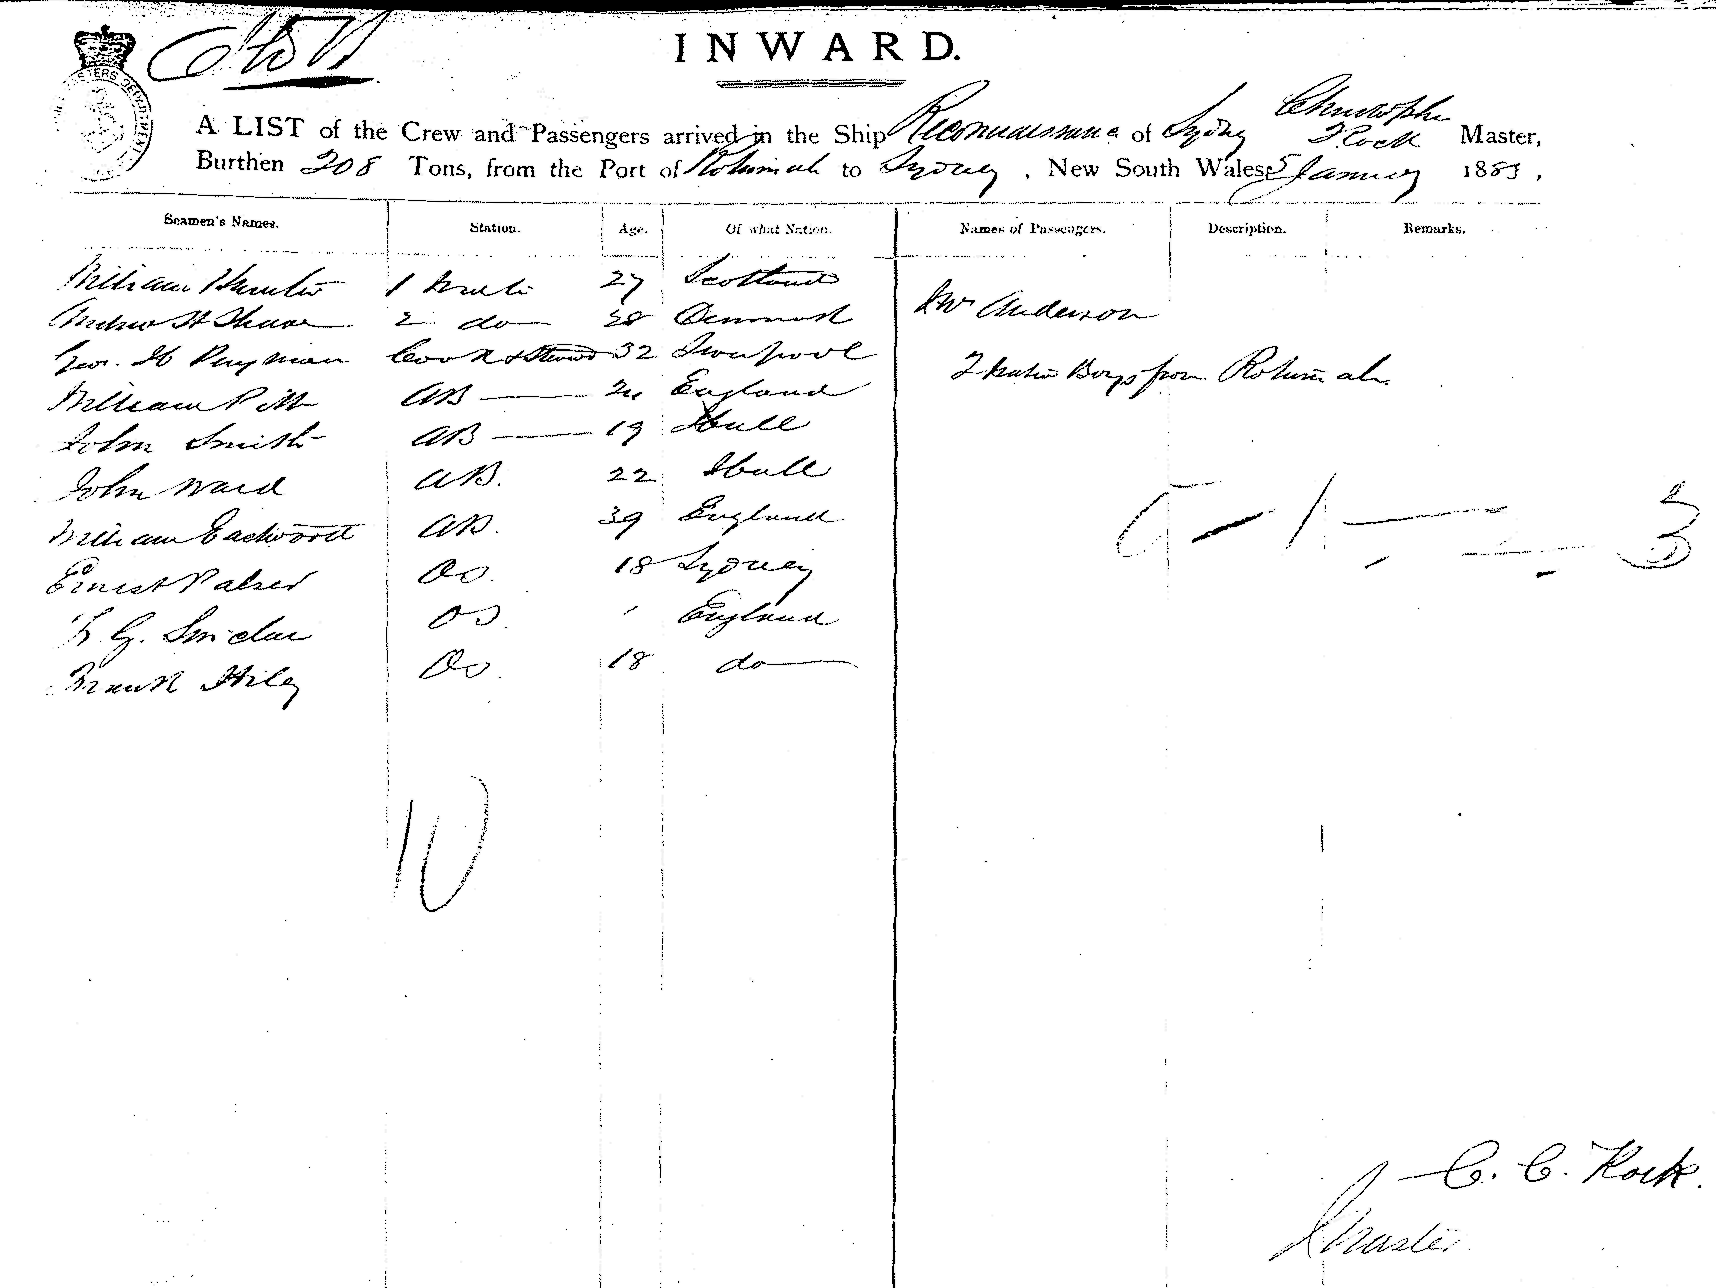 INWARD.
A LIST of the Crew and Passengers arrived in the Ship Reconnaissance of Sydney Christopher Kock Master,
Burthen 208 Tons, from the Port of Rotumah to Sydney, New South Wales, 5 January 1883.
Seamen's Names. Station. Age. Of what Nation. Names of Passengers. Description. Remarks.
William Hunter 1 Mate 27 Scotland
2 do 38 Denmark
Mr Anderson
Geo. H Perryman Cook & Steward 32 Liverpool
2 Native Boys from Rotumah
William Pitt AB 24 England
John Smith AB 19 Hull
John Ward AB. 22 Hull
William Eastwood AB. 39 England
Ernest Palser OS 18 Sydney
G. Sinclair OS England
Frank Hiley OS 18 do
3
10
C. C. Kock.
Master